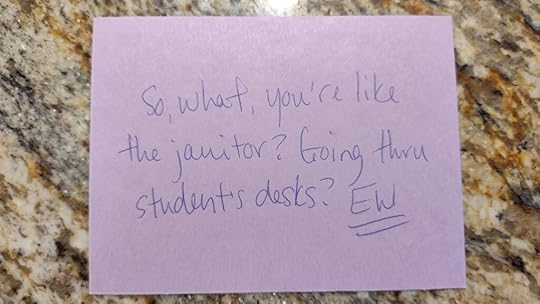 So, what, you're like
the janitor? Going thru
student's desks? EW